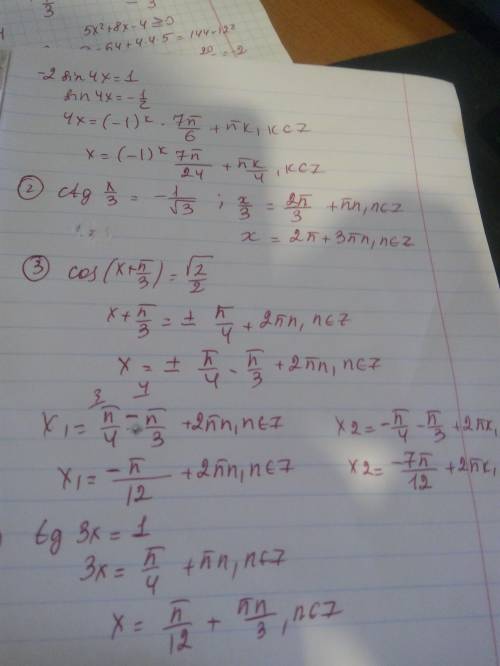 5x²+8x-4≥0
-64+4·4·5=144=12²
-2 sin 4x=1
sin 4x=-1/2
4x=(-1)ᵏ · 7π/6 + πk, k∈Z
x=(-1)ᵏ 7π/24 + πk/4, k∈Z
② ctg x/3 = -1/√3 ; x/3 = 2π/3 + πn, n∈Z
x = 2π+3πn, n∈Z
③ cos(x+π/3)=√2/2
x+π/3=± π/4 + 2πn, n∈Z
x = ± π/4 - π/3 + 2πn, n∈Z
x₁= π/4 - π/3 +2πn, n∈Z x₂=-π/4 - π/3 + 2πk,
x₁= -π/12 +2πn, n∈Z x₂= -7π/12 + 2πk,
tg 3x = 1
3x= π/4 + πn, n∈Z
x= π/12 + πn/3, n∈Z